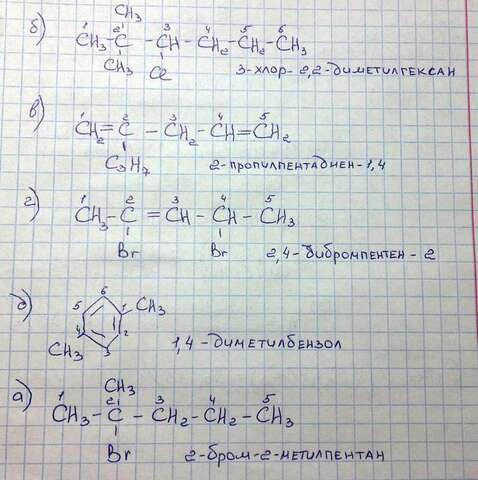 б)
CH₃
1 2 3 4 5 6
CH₃–C–CH–CH₂–CH₂–CH₃
CH₃ Cl
3-хлор-2,2-диметилгексан
в)
1 2 3 4 5
CH₂=C–CH₂–CH=CH₂
C₃H₇
2-пропилпентадиен-1,4
г)
1 2 3 4 5
CH₃–C=CH–CH–CH₃
Br Br
2,4-дибромпентен-2
д)
6
5 1 CH₃
4 2
CH₃ 3
1,4-диметилбензол
а)
CH₃
1 2 3 4 5
CH₃–C–CH₂–CH₂–CH₃
Br
2-бром-2-метилпентан